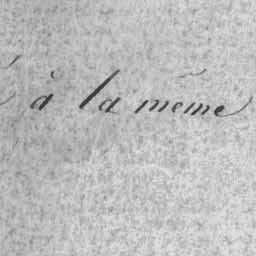 à la même